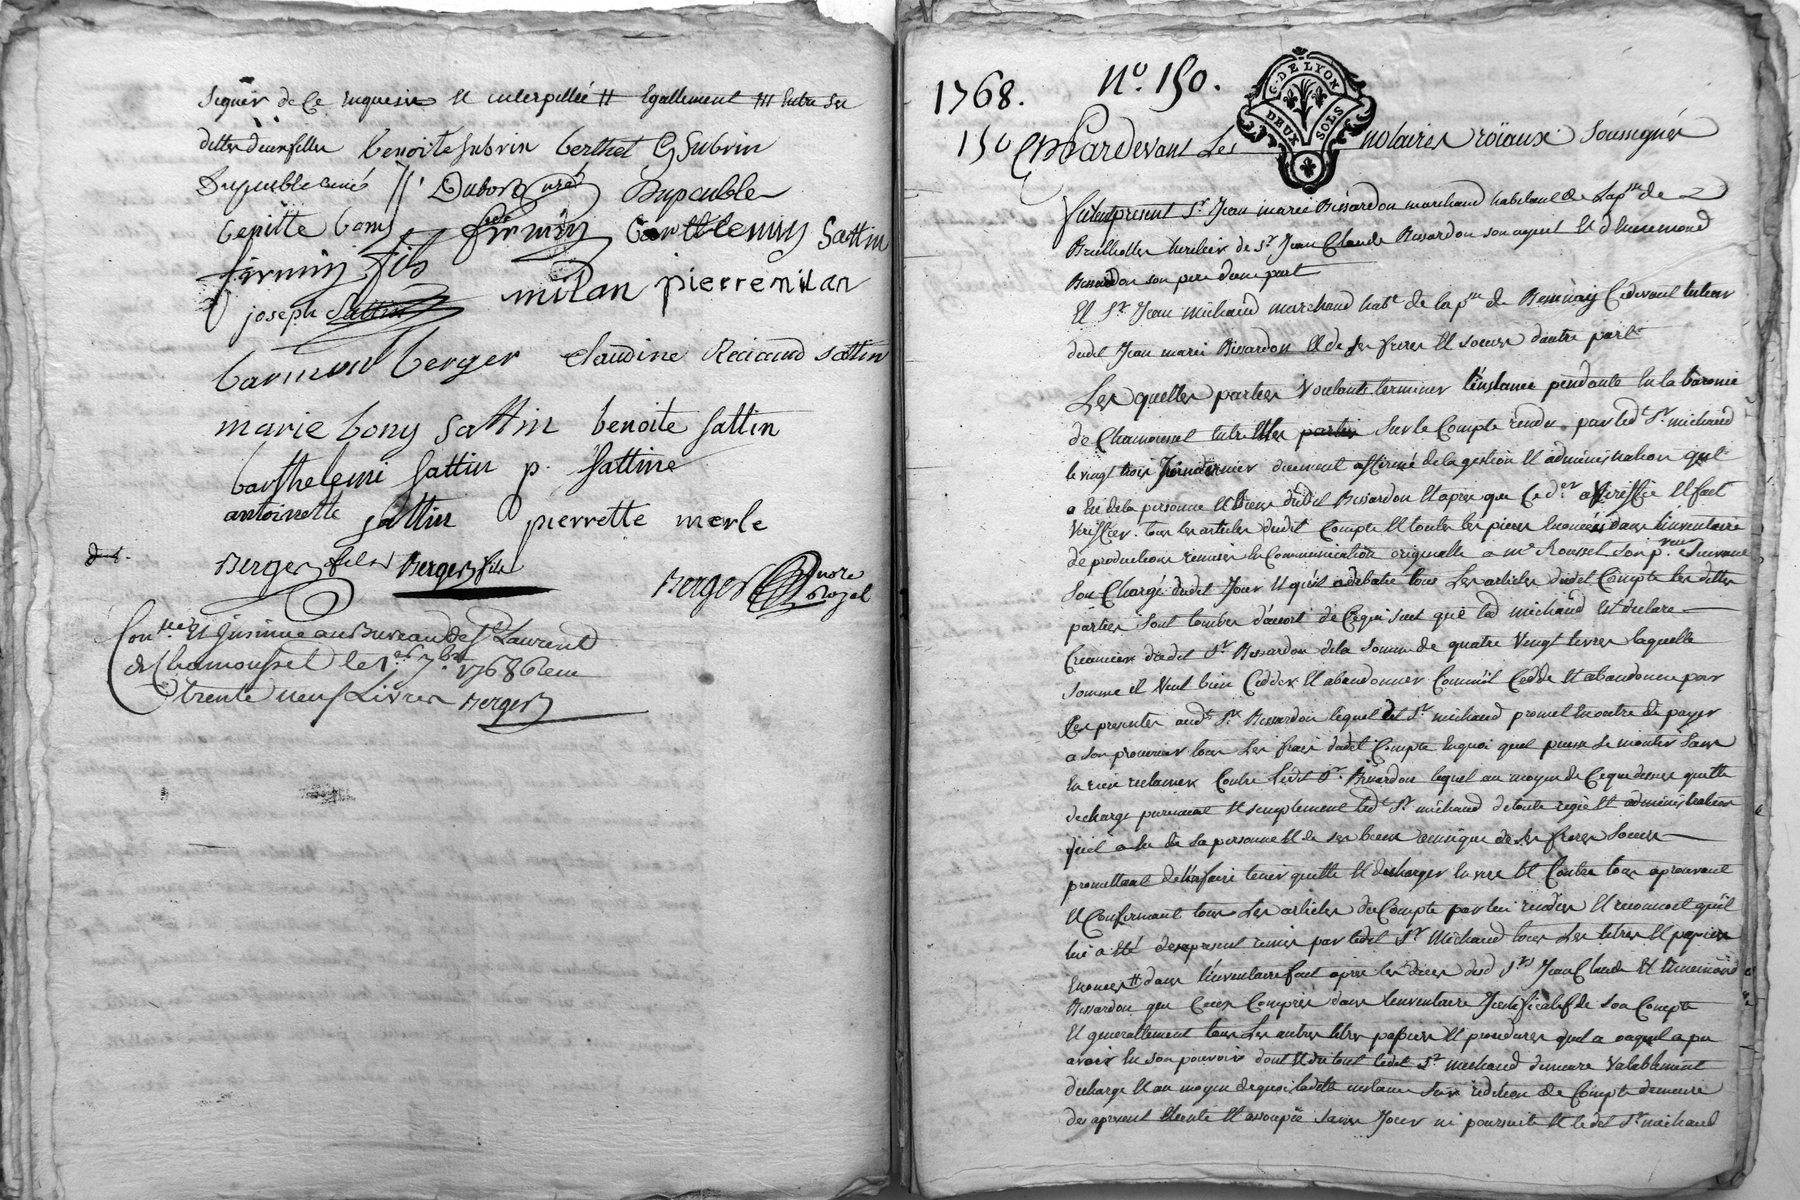 signer de ce enquesis et interpellés # Egallement ### Entre ses
dittes deux filles benoite subrin berthet G Subrin
Dupeuble ainés // Dubost curé Dupeuble
benitte bony firmin barthlemy Sattin
firmin fils
joseph Sattin milan pierre milan
barmon berger claudine Sattin
marie bony sattin benoite sattin
barthelemi sattin p. sattine
antoinette sattin pierrette merle
Berger fils Berger fils
Berger nore royal
Con.llé et Insinué au Bureau de St Laurent
de Chamousset le 1.er 7.bre 1768
trente neuf Livres Berger
1768. N.o 150.
G. DE LYON
DEUX SOLS
150 Pardevant Les notaires roïaux soussignés
fut present Sr Jean marie Bissardon marchand habitant de La p.sse de
Brullioles heritier de sr Jean Claude Bissardon son ayeul et d'Ennemond
Bissardon son pere d'une part
Et Sr Jean michaud marchand hab.t de la p.sse de Bessenay Cydevant tuteur
dudit Jean marie Bissardon et de ses freres et soeurs d'autre part
Les quelles parties voulants terminer l'instance pendante en la baronie
de Chamousset entre Elles parties sur le Compte rendu par led.t Sr michaud
le vingt trois Juin dernier duement affirmé de la gestion et administration qu'il
a eu de la personne et biens dudit Bissardon et apres que ced.er a verifié et fait
verifier tous les articles dudit Compte et toutes les pieces Enoncées dans l'inventaire
de production remises en Communication originelle a m.e Roussel son p.reur suivant
son Chargé dudit Jour et qu'il a debatu tous Les articles dudit Compte les dittes
parties sont tombés d'acort de ce qui suit que led michaud est declaré
Creancier dudit Sr Bissardon de la somme de quatre vingt livres laquelle
somme il veut bien Cedder et abandonner Comme il Cedde et abandonne par
Ces presentes aud.t Sr Bissardon lequel dit Sr michaud promet en outre de payer
a son procureur tous Les frais dudit Compte En quoi quil puisse se monter sans
En rien reclamer Contre Ledit Sr Bissardon lequel au moyen de Ce que dessus quitte
decharge purement et simplement led.t Sr michaud de toute regie et administration
quil a eu de sa personne et de ses biens de ses freres soeurs
promettant de l'en faire tenir quitte et decharger envers et Contre tous aprouvant
et Confirmant tous Les articles du Compte par lui rendu et reconnoit qu'il
lui a eté des apresent remis par ledit Sr Michaud tous Les titres et papiers
Enoncés # dans l'inventaire fait apres les deces desd Srs Jean Claude et Ennemond
Bissardon que Ceux Compris dans l'inventaire Justificatif de son Compte
et generallement tous Les autres titres papiers et procedures quil a ou quil a pu
avoir En son pouvoir dont et du tout ledit Sr michaud demeure valablement
decharge et au moyen de quoi laditte instance sur redition de Compte demeure
des apresent Eteinte et assoupie sans Jour ni poursuite et ledit Sr michaud